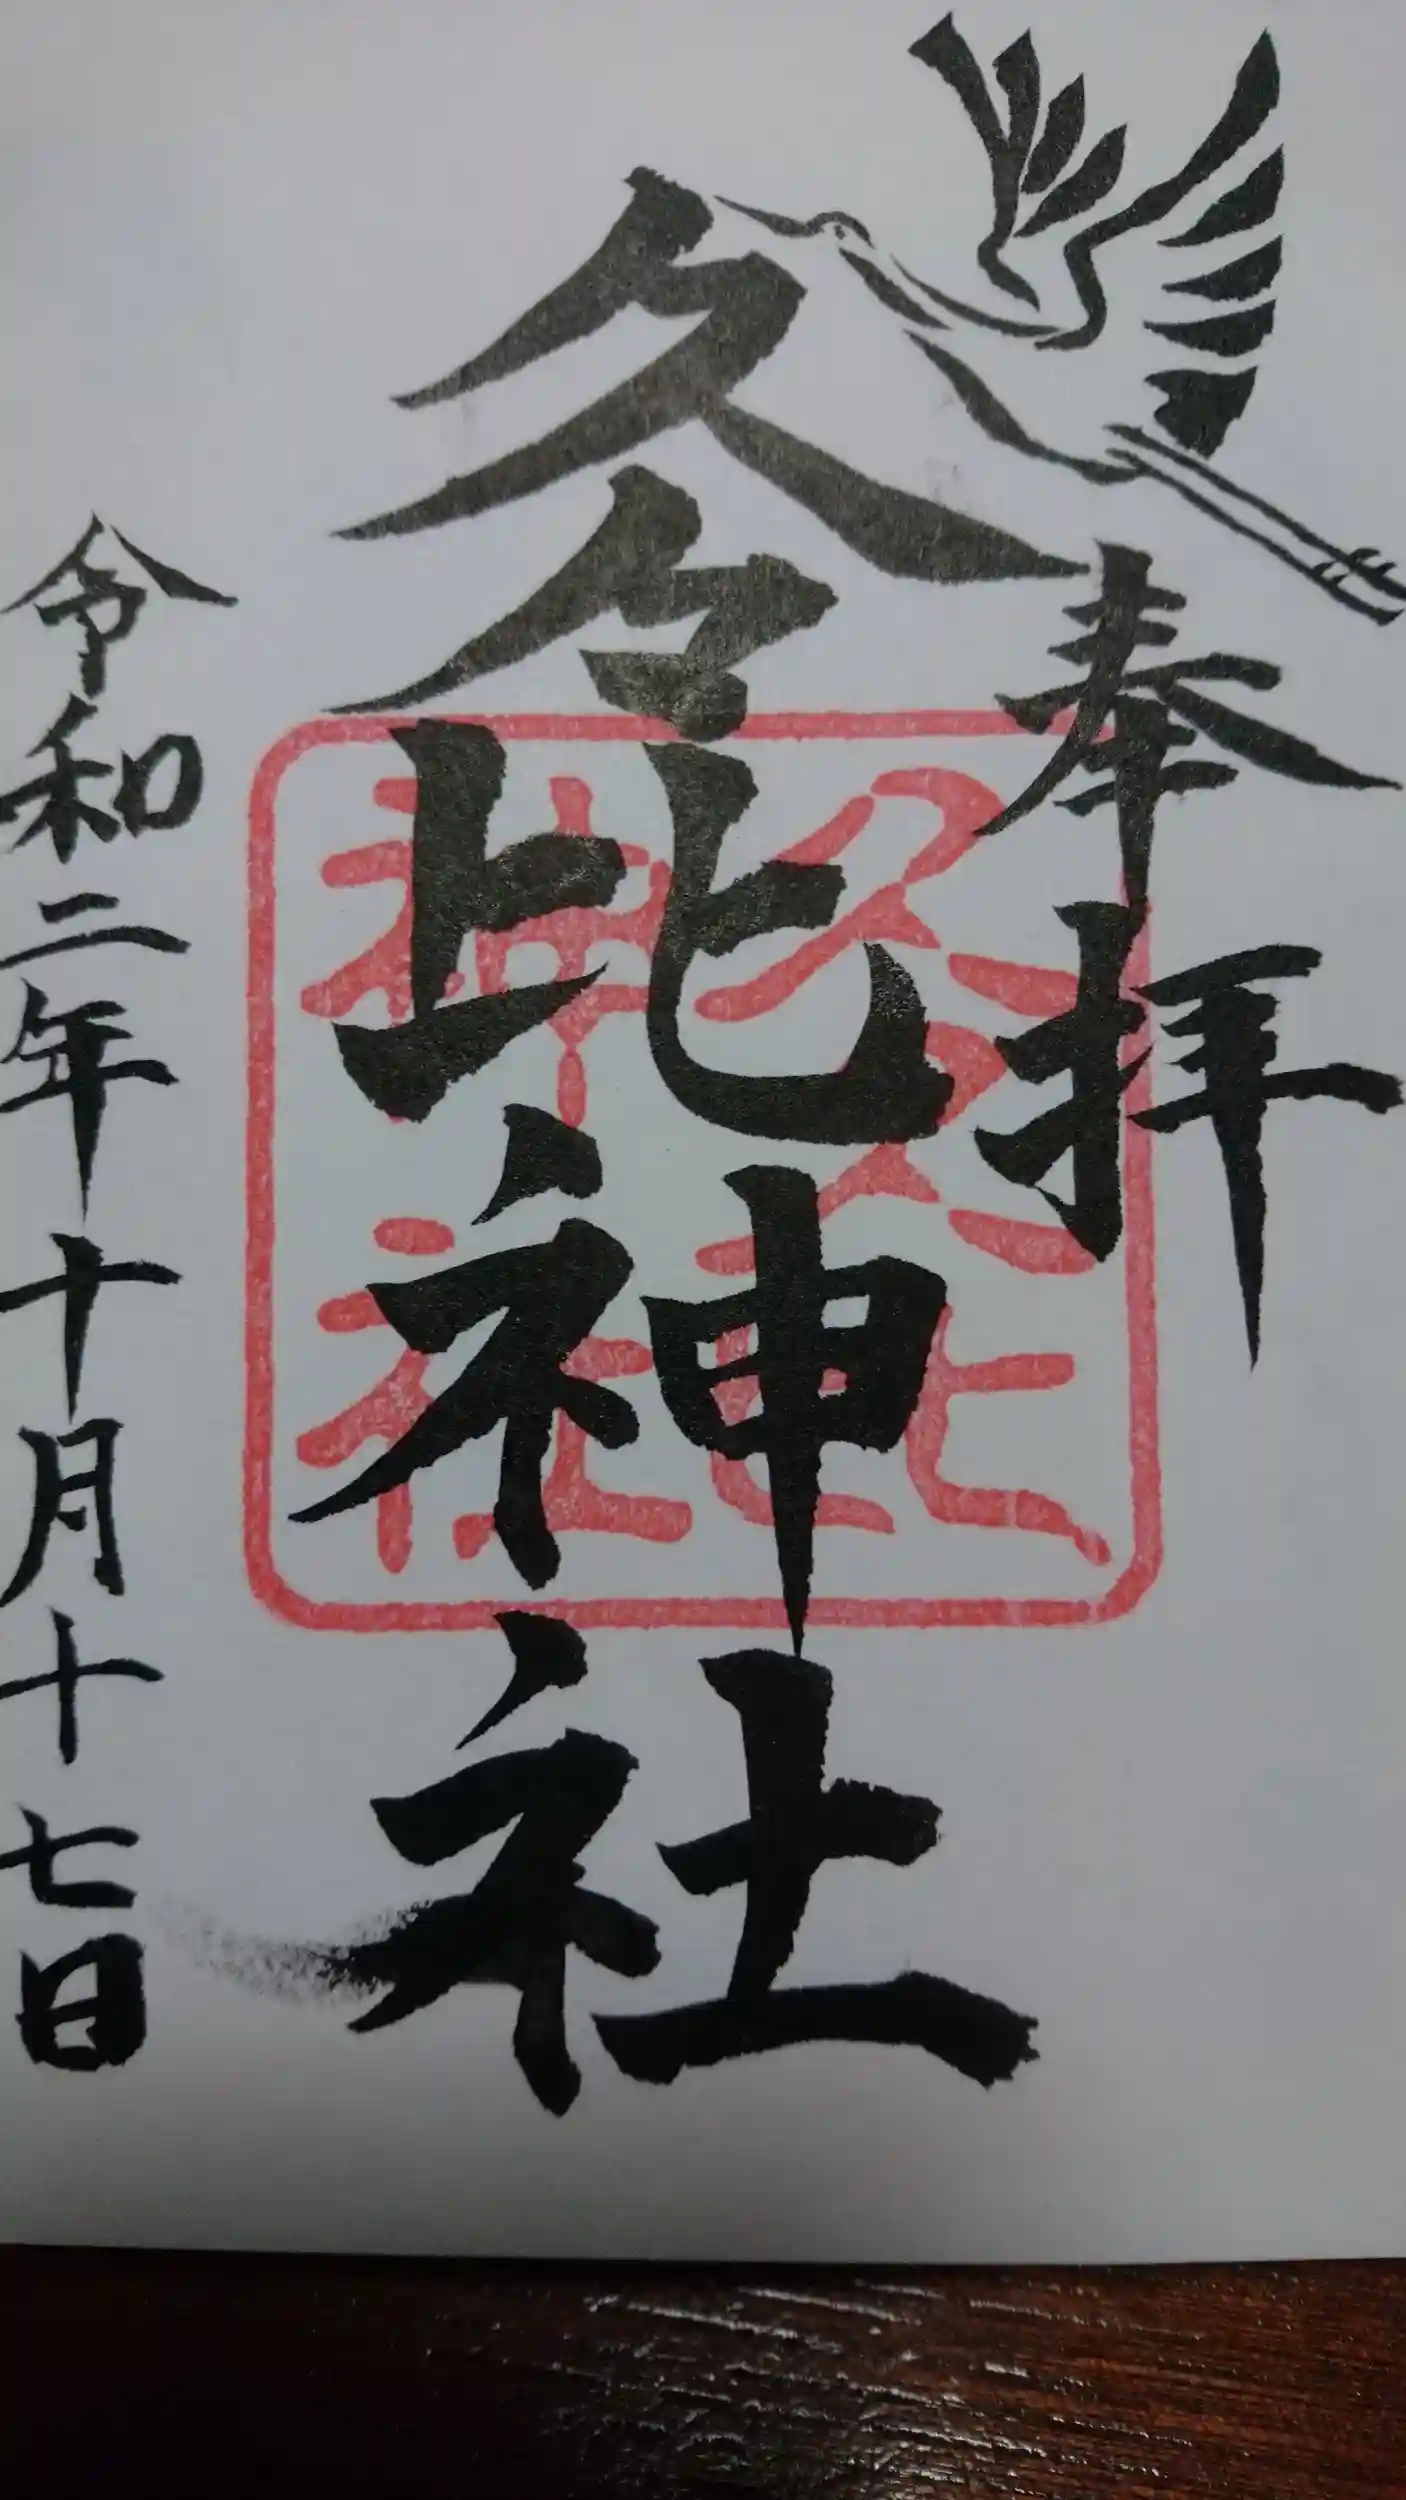 奉拝
久々比神社
久々比
神社
令和二年十月十七日